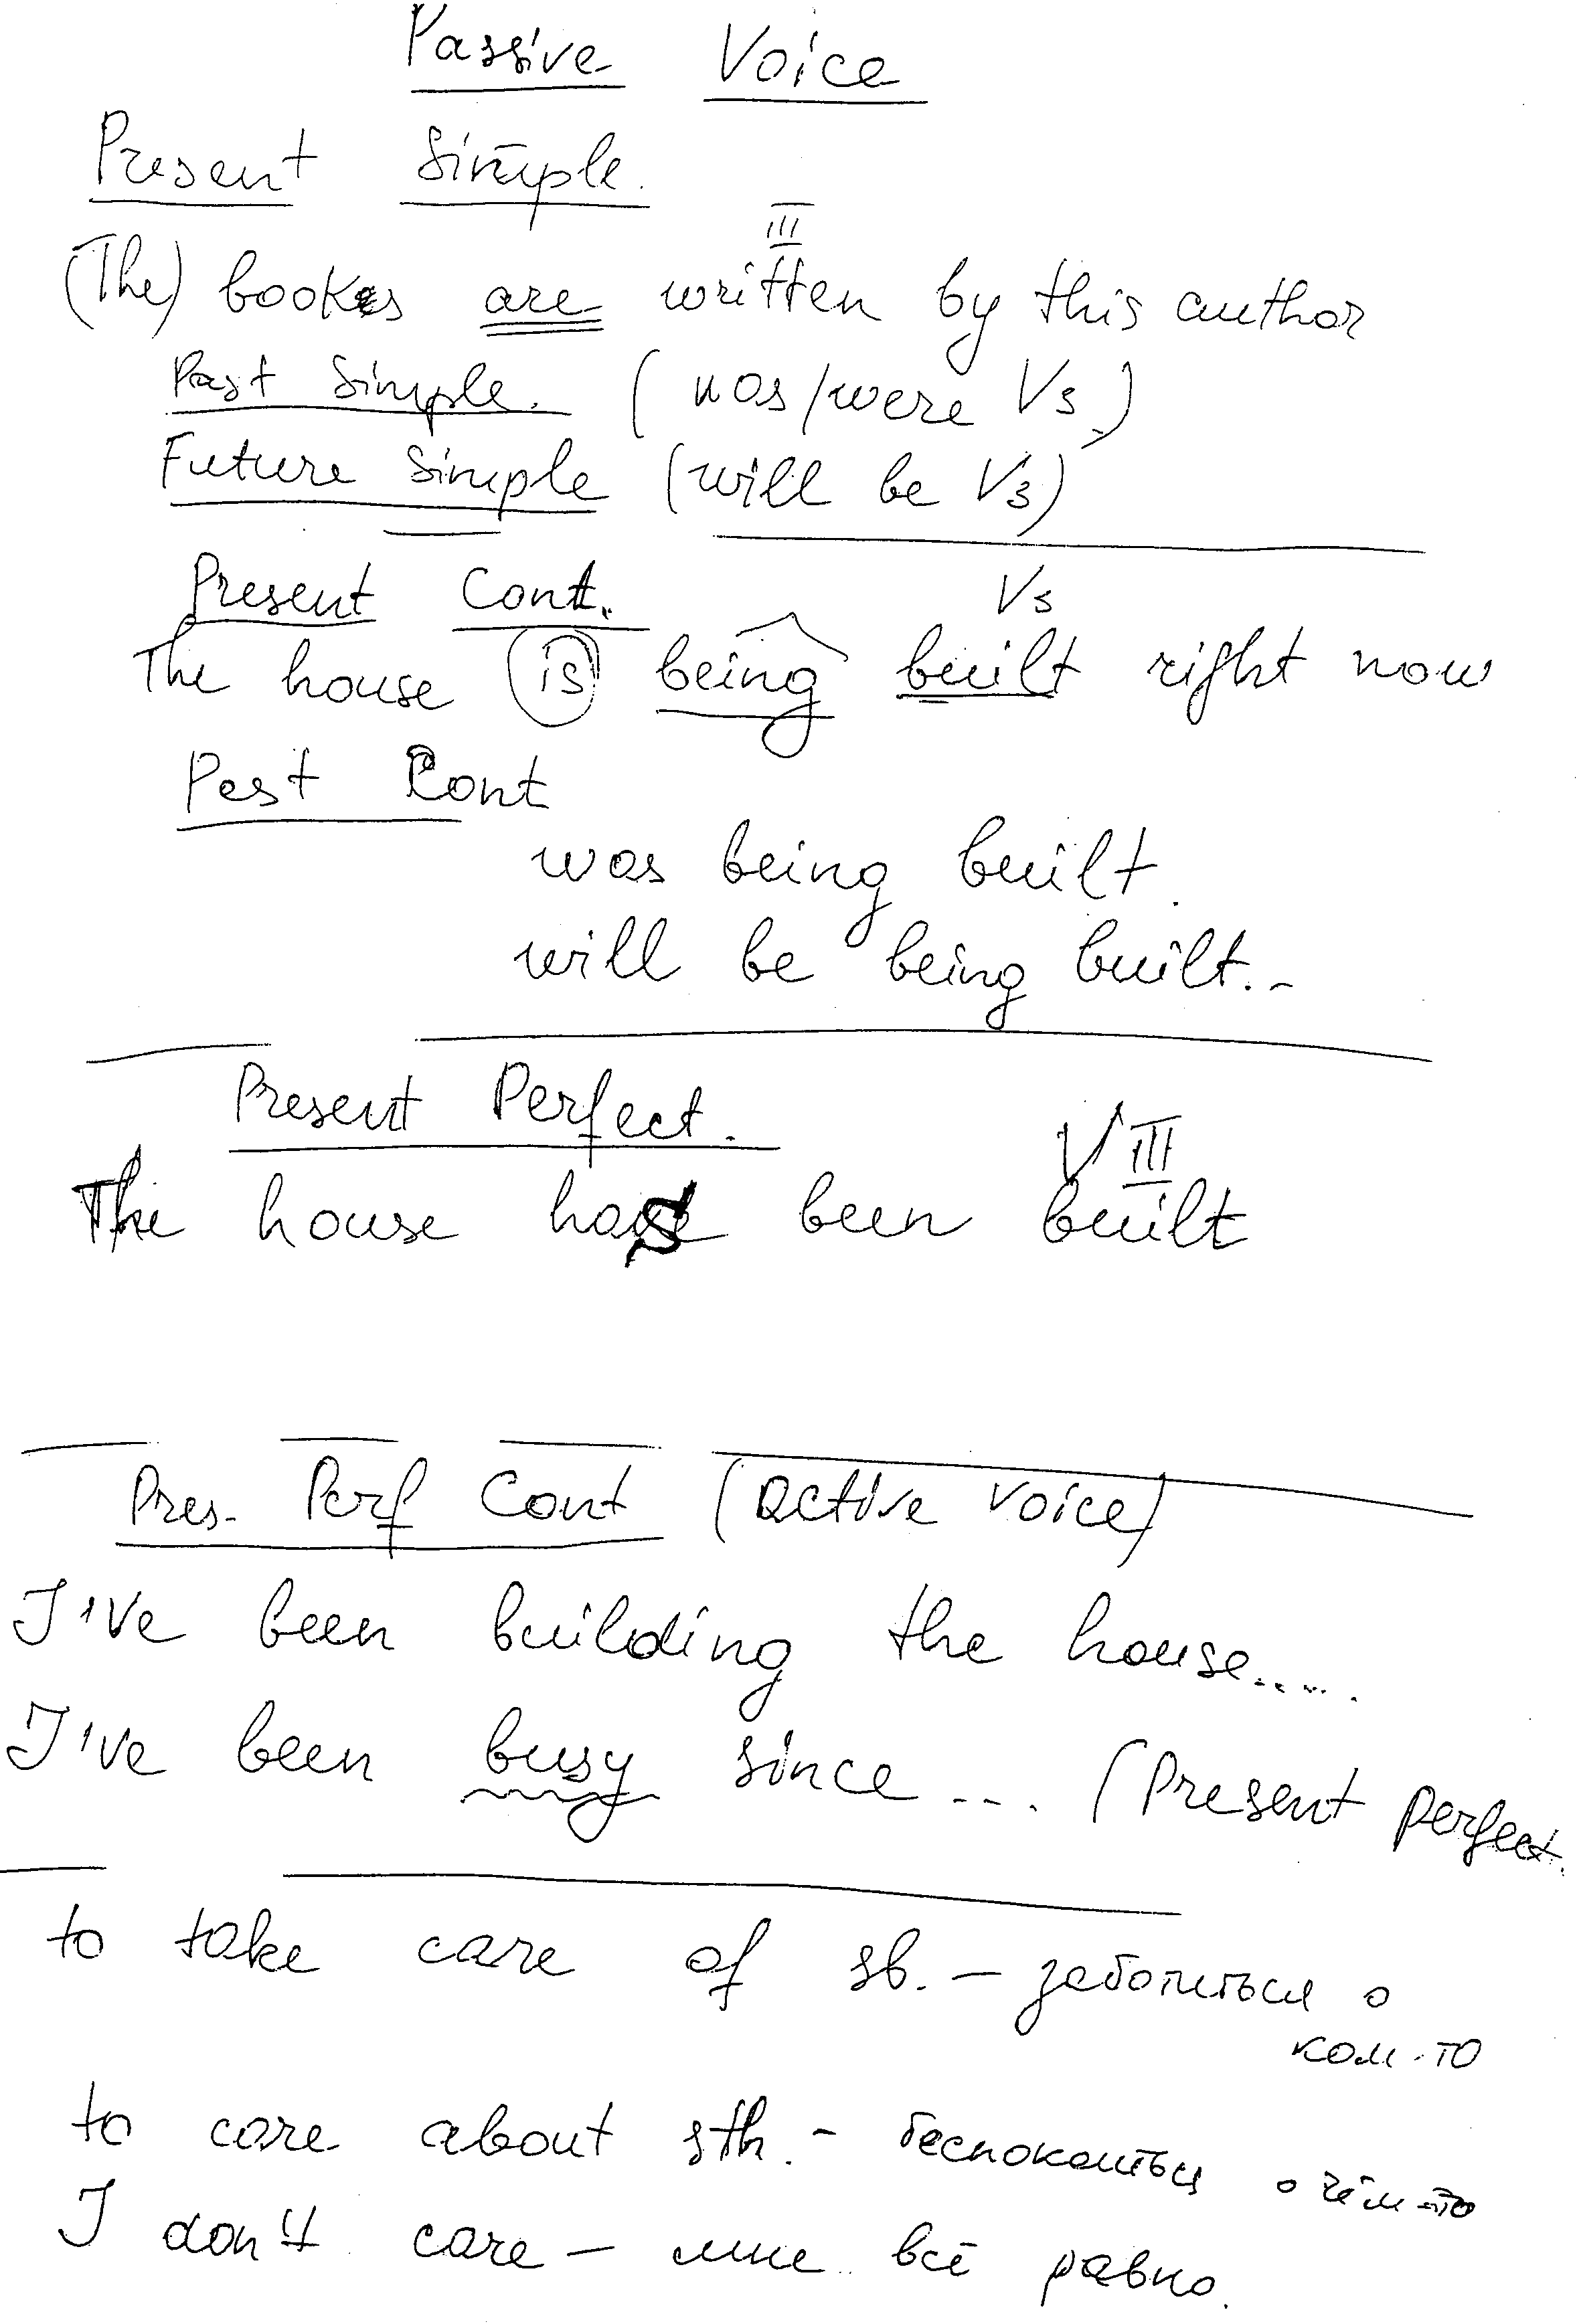 Passive Voice
Present Simple.
III
(The) books are written by this author
Past Simple. (was/were V3)
Future Simple (will be V3)
Present Cont. V3
The house is being built right now
Past Cont
was being built.
will be being built..
Present Perfect. V III
The house has been built
Pres. Perf Cont (active voice)
I've been building the house.....
I've been busy since .... (Present perfect.
to take care of sb. – заботиться о
ком-то
to care about sth. - беспокоиться о чём-то
I don't care – мне всё равно.